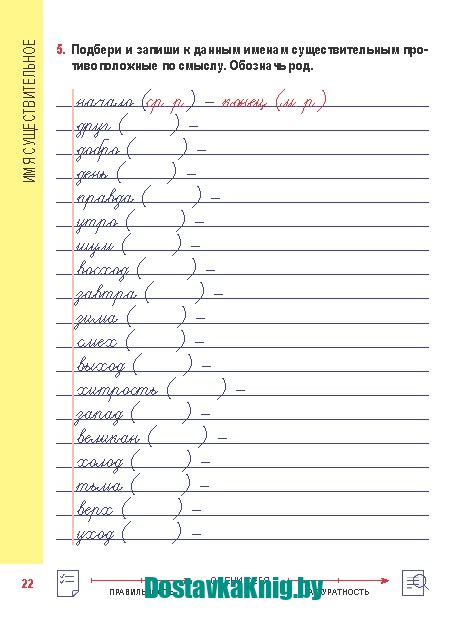 ИМЯ СУЩЕСТВИТЕЛЬНОЕ
5. Подбери и запиши к данным именам существительным про-
тивоположные по смыслу. Обозначь род.
начало (ср. р.) – конец (м. р.)
друг ( ) –
добро ( ) –
день ( ) –
правда ( ) –
утро ( ) –
шум ( ) –
восход ( ) –
завтра ( ) –
зима ( ) –
смех ( ) –
выход ( ) –
хитрость ( ) –
запад ( ) –
великан ( ) –
холод ( ) –
тьма ( ) –
верх ( ) –
уход ( ) –
22
DostavkaKnig.by